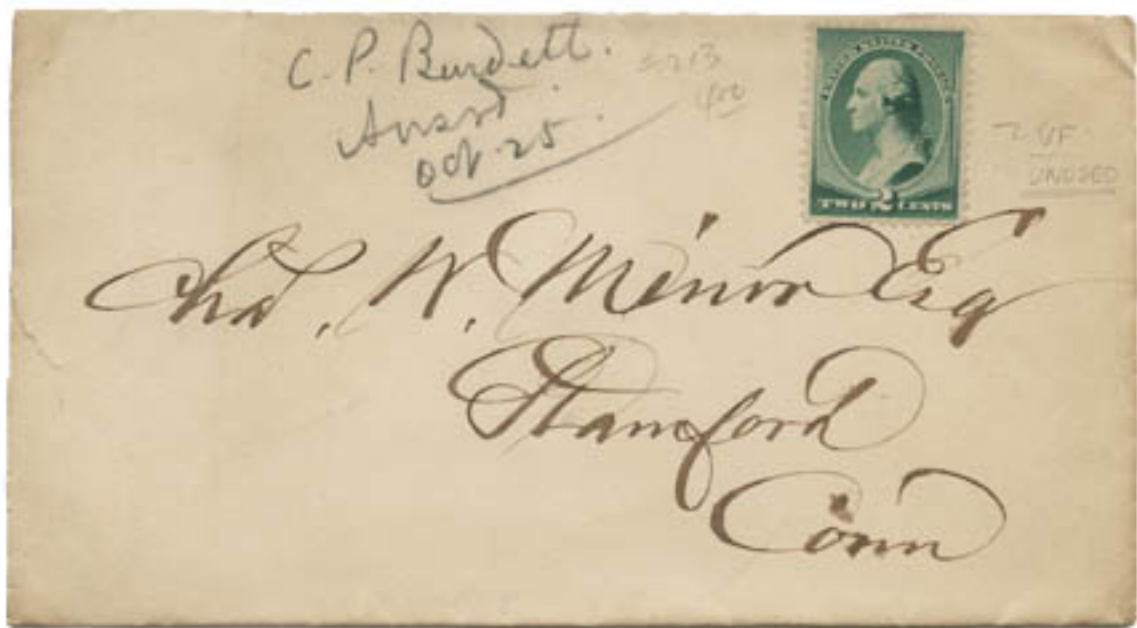 C. P. Burdett.
Ansd.
Oct. 25.
213
400
UNITED STATES POSTAGE
TWO 2 CENTS
VF
UNUSED
Chas. W. Minor Esq
Stamford
Conn